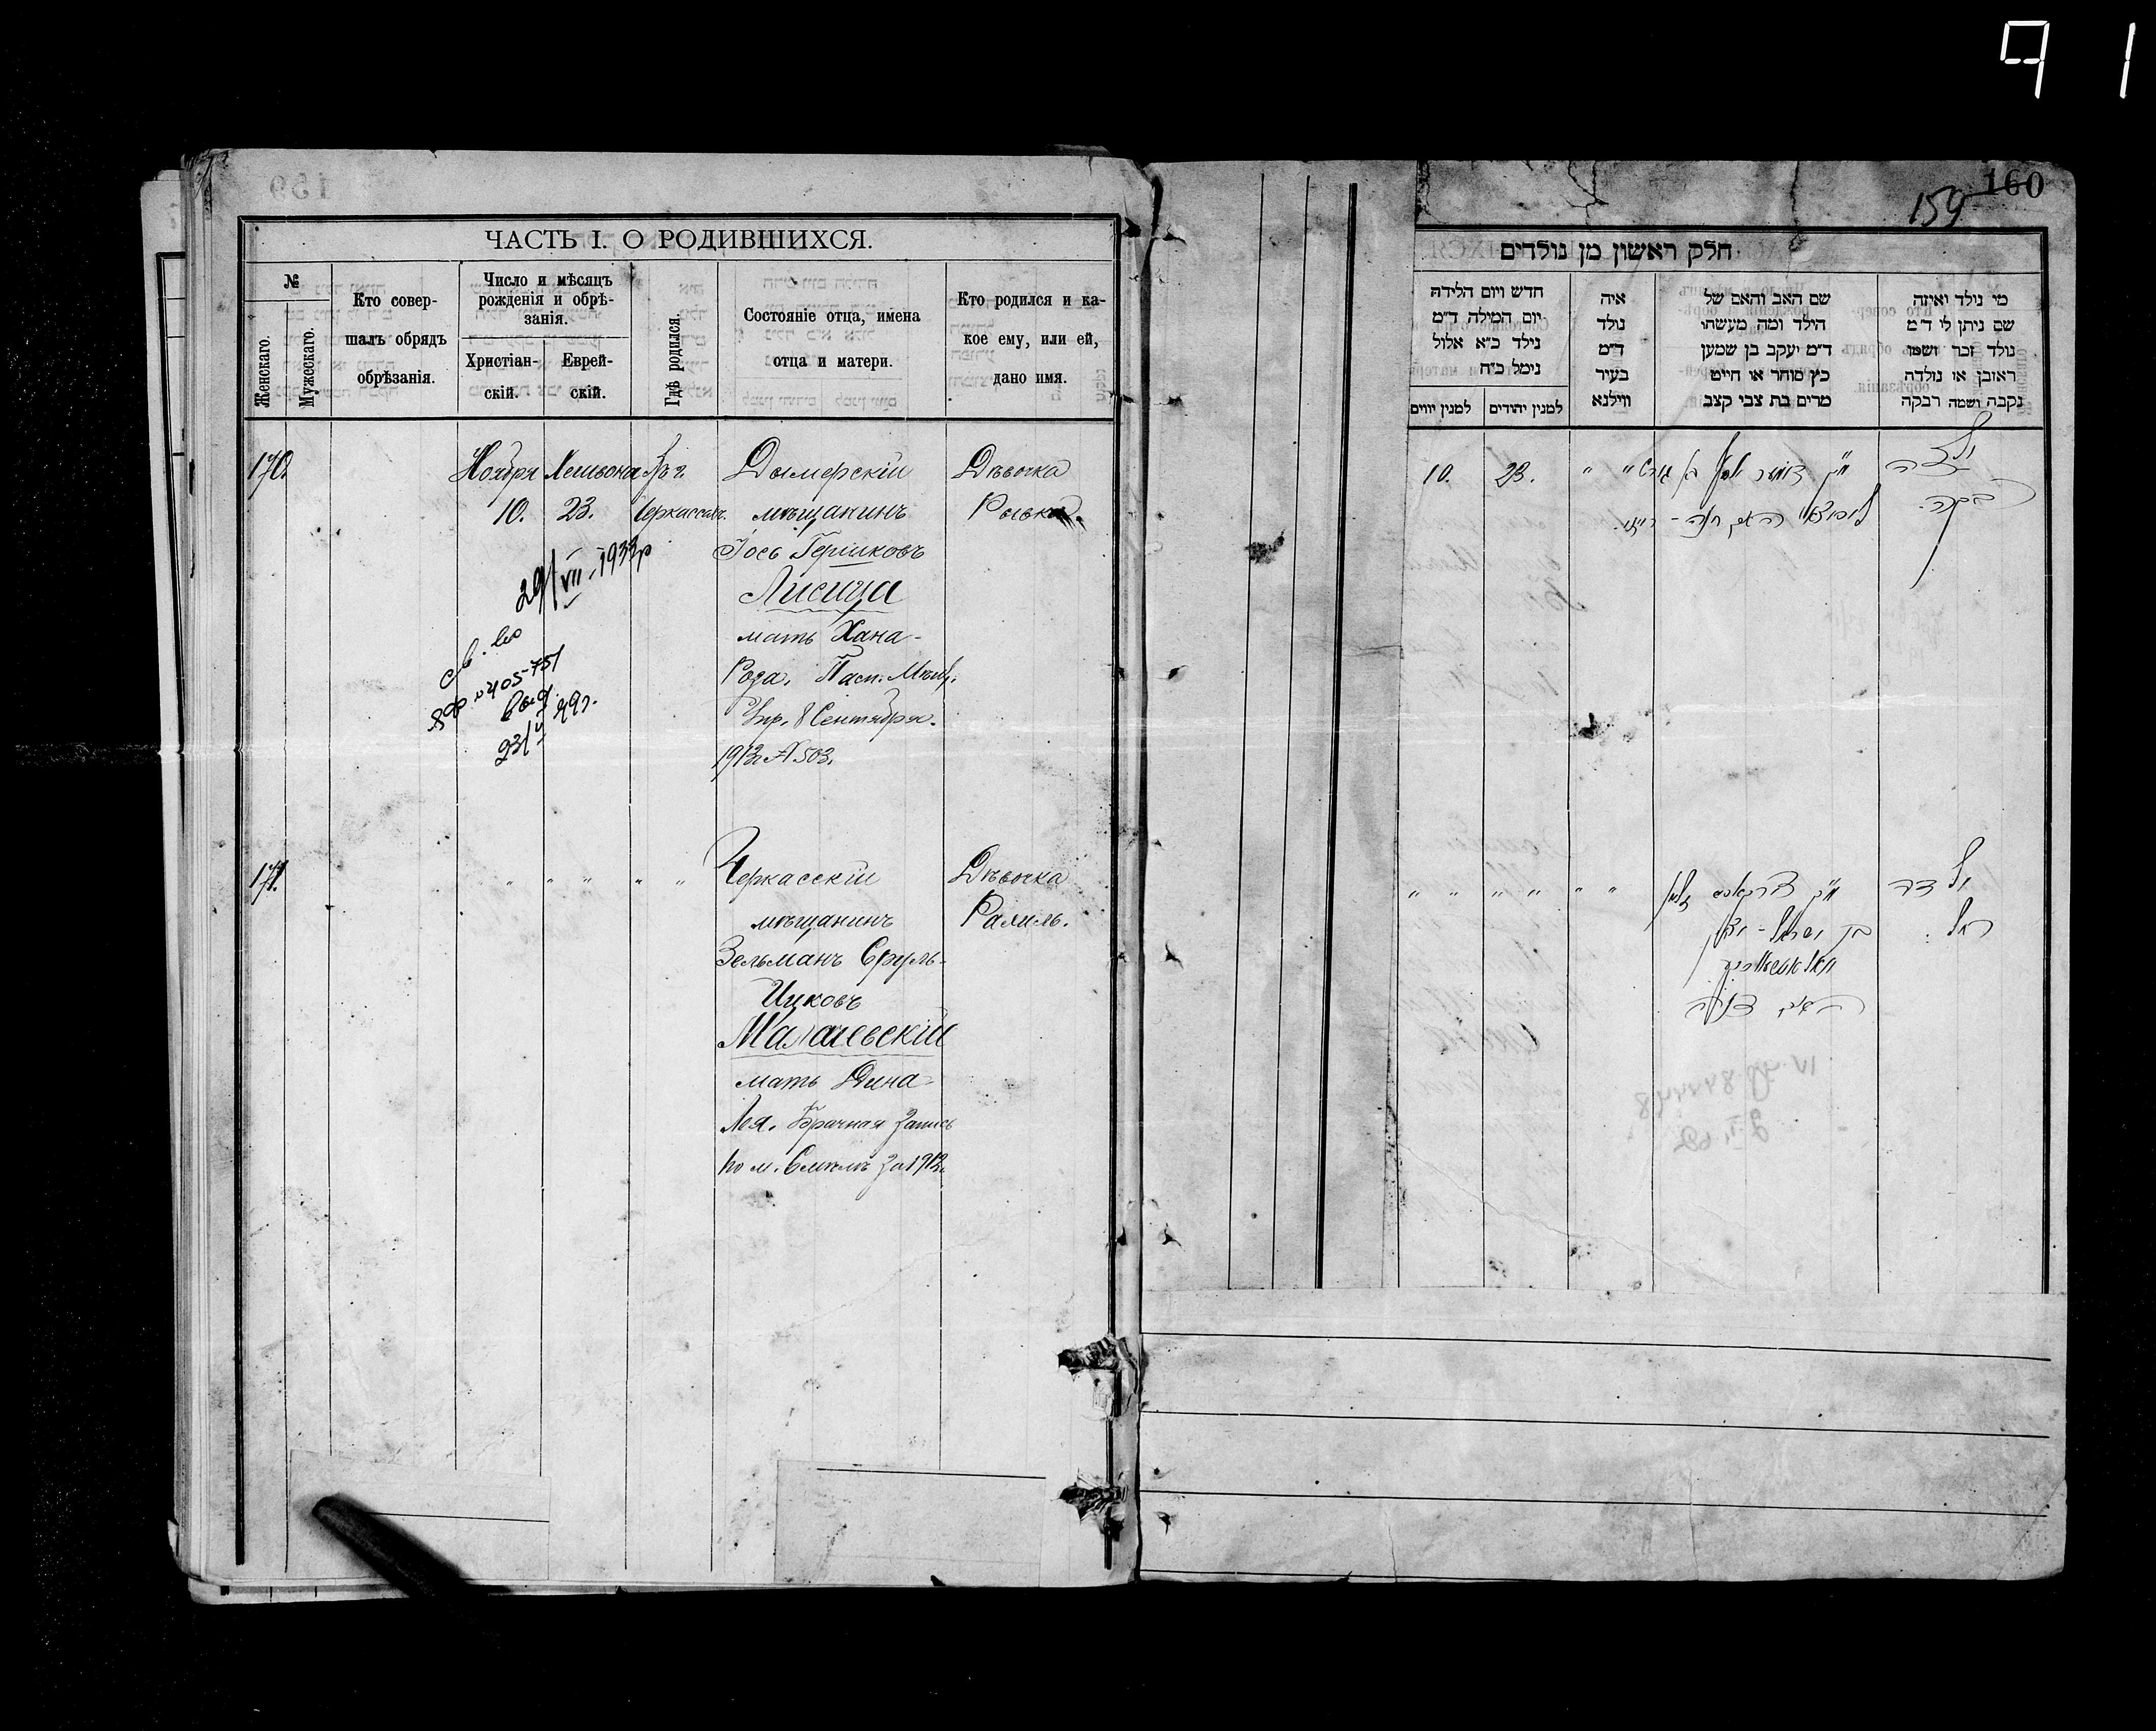 91
ЧАСТЬ I. О РОДИВШИХСЯ.
№
Женскаго.
Мужескаго.
Кто совер-
шалъ обрядъ
обрѣзанія.
Число и мѣсяцъ
рожденія и обрѣ-
занія.
Христіан-
скій.
Еврей-
скій.
Гдѣ родился
Состояніе отца, имена
отца и матери.
Кто родился и ка-
кое ему, или ей,
дано имя.
170. Ноября Хешвона Въ г. Дымерскій Дѣвочка
10. 23. Черкассахъ. мѣщанинъ Рывка.
Іось Гершковъ
Лисица
мать Хана-
Роза. Пасп. Мѣщ.
Упр. 8 Сентября.
1913 г. № 503.
29/VII-1933р
св. во
№ 405-751
выд.
23/V 29г.
171. " " " " " " Черкасскій Дѣвочка
мѣщанинъ Рахиль.
Зельманъ Сруль-
Ицковъ
Малачевскій
мать Дина-
Лея. Брачная запись
по м. Смѣлѣ за 1912 г.
160
159
חלק ראשון מן נולדים
מי נולד ואיזה
שם ניתן לי ד״מ
נולד זכר ושמו
ראובן או נולדה
נקבה ושמה רבקה
שם האב והאם של
הילד ומה מעשהו
ד״מ יעקב בן שמען
כץ סוחר או חייט
מרים בת צבי קצב
איה
נולד
ד״מ
בעיר
ווילנא
חדש ויום הלידה
יום המילה ד״מ
נילד כ״א אלול
נימל כ״ח
למנין יהודים
למנין יווים
10. 23. " "
רבקה.
" " " " " "
רחל.